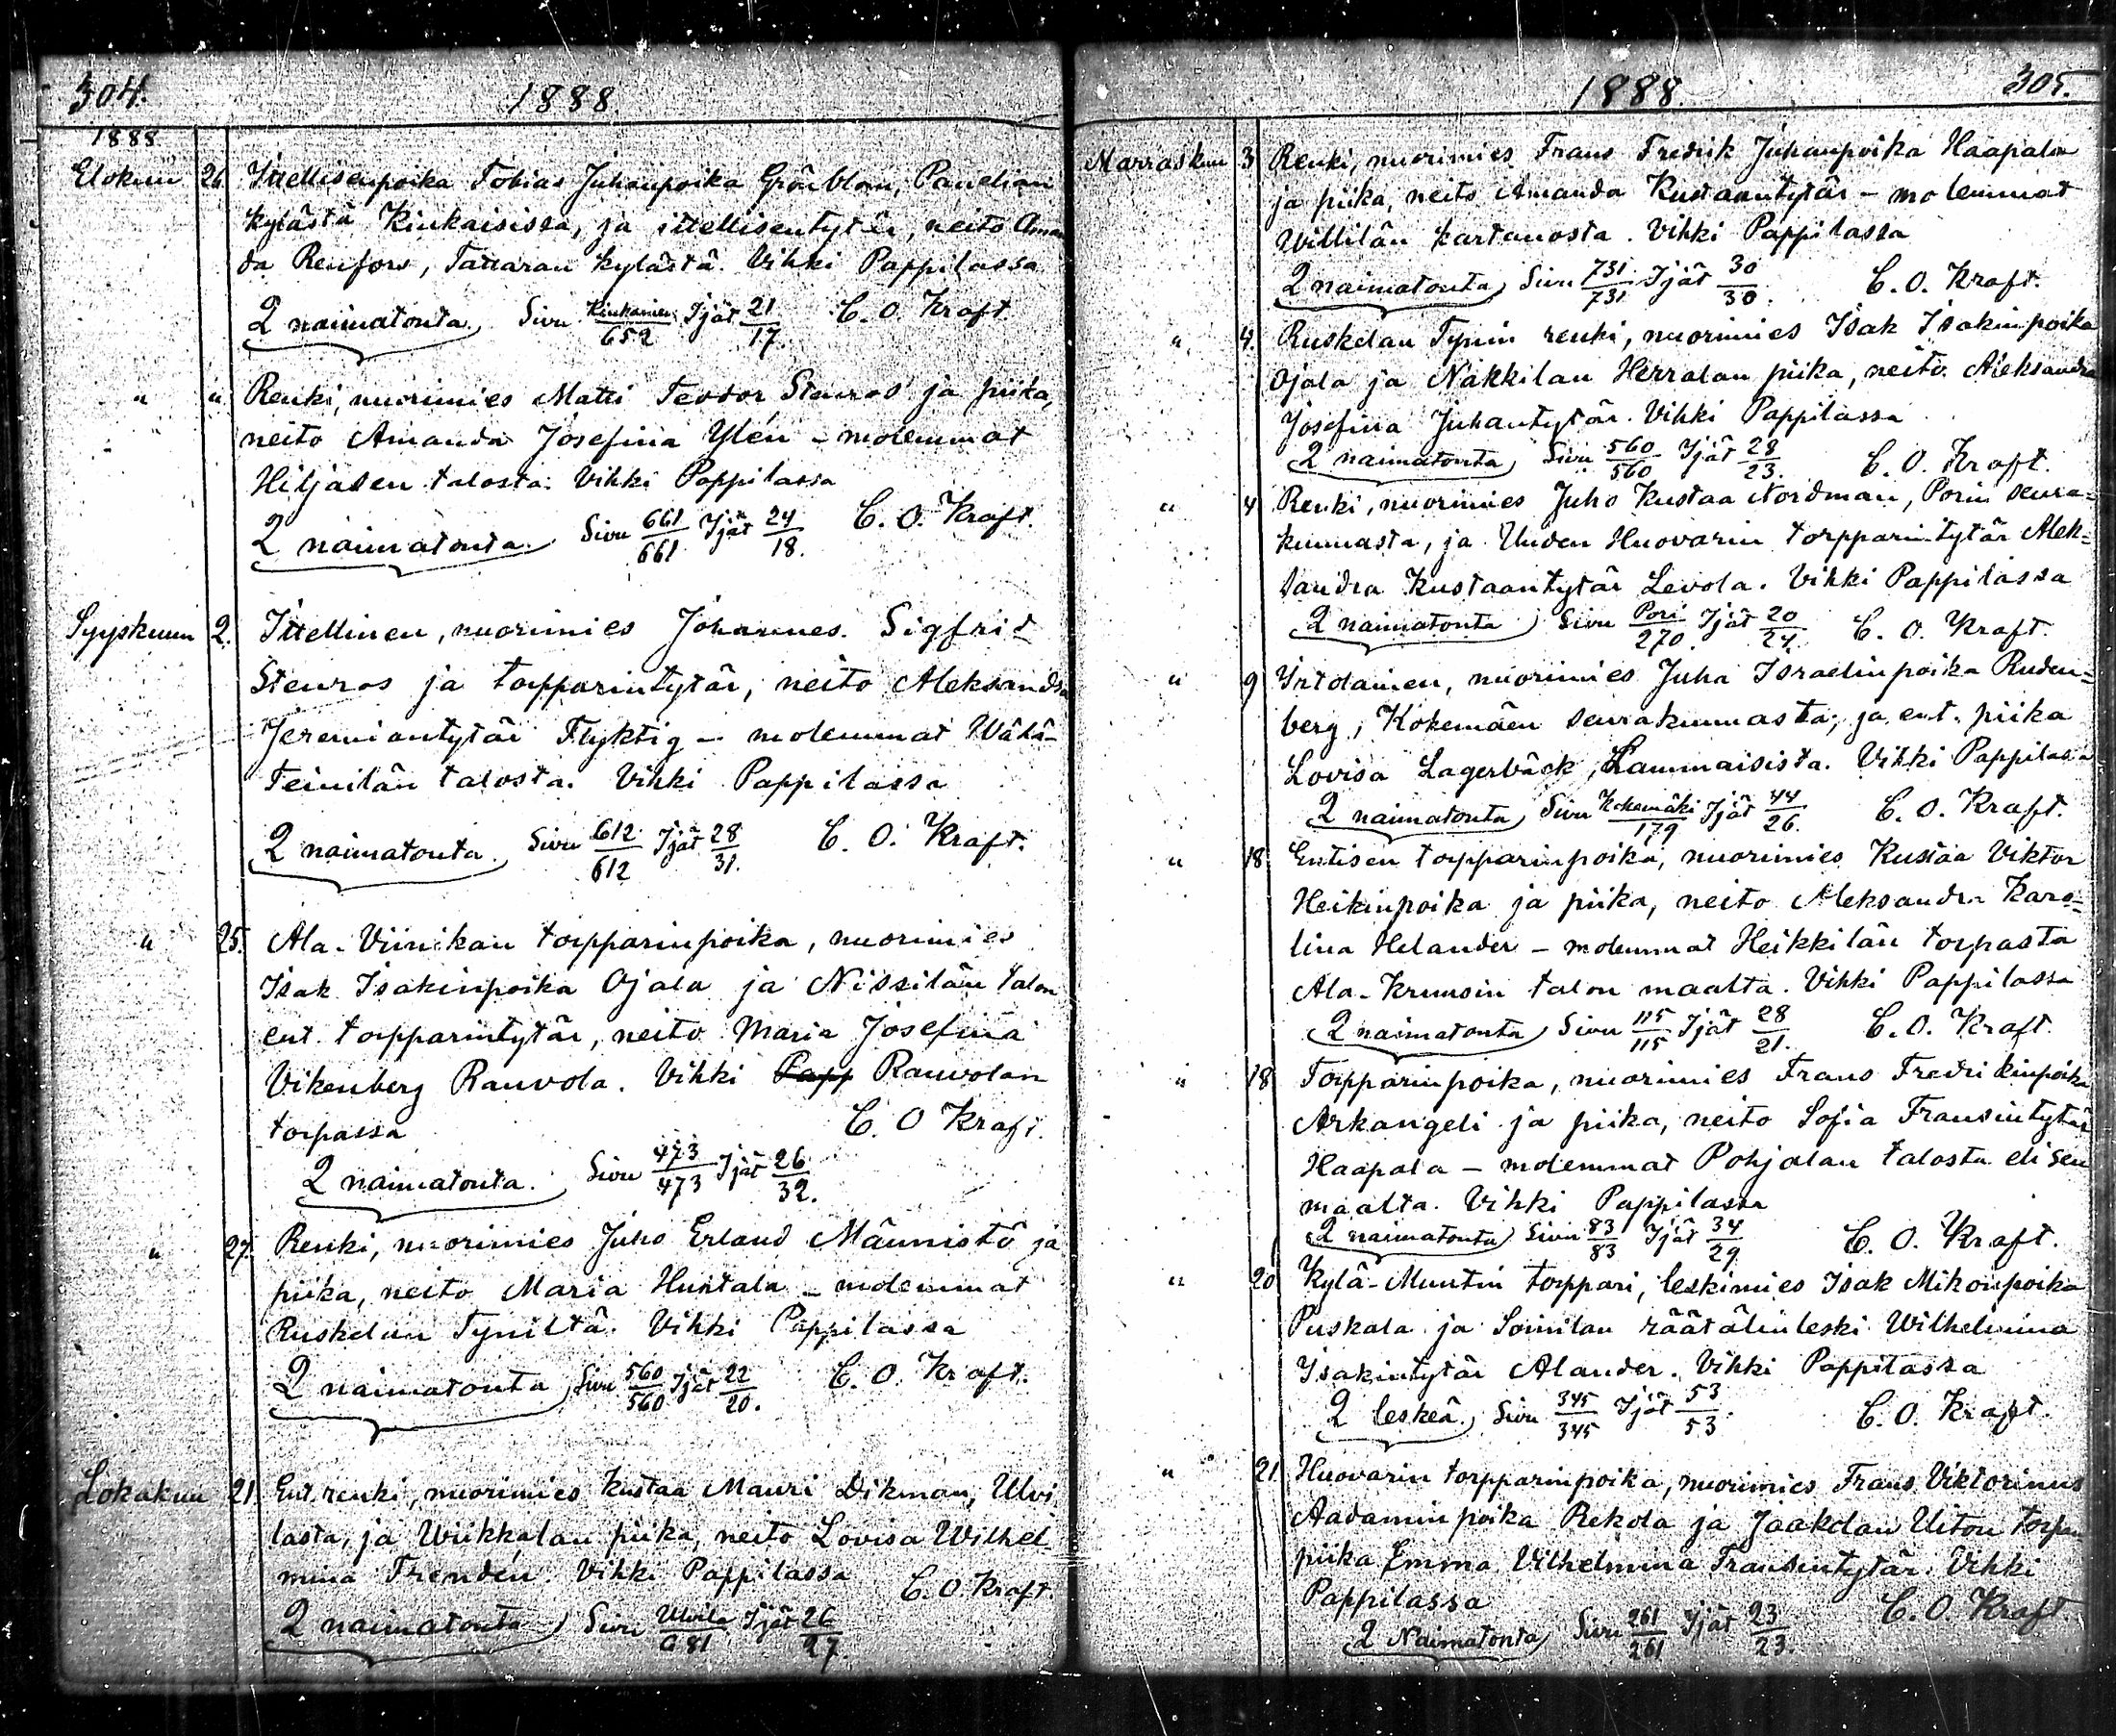 304.
1888.
1888
Elokuu 26. Ittellisenpoika Tobias Juhanpoika Grönblom, Panelian
kylästä Kiukaisissa, ja ittellisentytär, neito Aman
da Renfors, Tattaran kylästä. Vihki Pappilassa
2 naimatonta. Sivu Kiukainen/652 Ijät 21/17. C. O. Kraft
" " Renki, nuorimies Matti Teodor Stenros ja piika,
neito Amanda Josefina Ylén – molemmat
Hiljasen talosta. Vihki Pappilassa
2 naimatonta. Sivu 661/661 Ijät 24/18. C. O. Kraft.
Syyskuun 2. Ittellinen, nuorimies Johannes Sigfrid
Stenros ja torpparintytär, neito Aleksandra
Jeremiantytär Flyktig – molemmat Wähä-
Teinilän talosta. Vihki Pappilassa
2 naimatonta. Sivu 612/612 Ijät 28/31. C. O. Kraft.
" 25. Ala-Viinikan torpparinpoika, nuorimies
Isak Isakinpoika Ojala ja Nissilän talon
ent. torpparintytär, neito Maria Josefina
Vikenberg Rauvola. Vihki Papp Rauvolan
torpassa C. O Kraft.
2 naimatonta. Sivu 473/473 Ijät 26/32.
" 27. Renki, nuorimies Juho Erland Männistö ja
piika, neito Maria Huntala – molemmat
Ruskelan Tyniltä. Vihki Pappilassa
2 naimatonta Sivu 560/560 Ijät 22/20. C. O. Kraft.
Lokakuu 21. Ent. renki, nuorimies Kustaa Mauri Dikman, Ulvi
lasta, ja Wiikkalan piika, neito Lovisa Wilhel
mina Frendén. Vihki Pappilassa C. O. Kraft.
2 naimatonta Sivu Ulvila/681 Ijät 26/27.
1888.
305.
Marraskuu 3 Renki, nuorimies Frans Fredrik Juhanpoika Haapala
ja piika, neito Amanda Kustaantytär – molemmat
Willilän kartanosta. Vihki Pappilassa
2 naimatonta Sivu 731/731 Ijät 30/30. C. O. Kraft.
" 4. Ruskelan Tynin renki, nuorimies Isak Isakinpoika
Ojala ja Nakkilan Herralan piika, neito Aleksandra
Josefina Juhantytär. Vihki Pappilassa
2 naimatonta Sivu 560/560 Ijät 28/23. C. O. Kraft.
" 4 Renki, nuorimies Juho Kustaa Nordman, Porin seura-
kunnasta, ja Uuden Huovarin torpparintytär Alek-
sandra Kustaantytär Levola. Vihki Pappilassa
2 naimatonta Sivu Pori/270. Ijät 20/24. C. O. Kraft.
" 9 Irtolainen, nuorimies Juha Israelinpoika Ruden-
berg, Kokemäen seurakunnasta, ja ent. piika
Lovisa Lagerbäck, Lammaisista. Vihki Pappilassa
2 naimatonta Sivu Kokemäki/179 Ijät 44/26. C. O. Kraft.
" 18 Entisen torpparinpoika, nuorimies Kustaa Viktor
Heikinpoika ja piika, neito Aleksandra Karo-
lina Helander – molemmat Heikkilän torpasta
Ala-Krunsin talon maalta. Vihki Pappilassa
2 naimatonta Sivu 115/115 Ijät 28/21. C. O. Kraft.
" 18 Torpparinpoika, nuorimies Frans Fredrikinpoika
Arkangeli ja piika, neito Sofia Fransintytär
Haapala – molemmat Pohjalan talosta eli sen
maalta. Vihki Pappilassa
2 naimatonta Sivu 83/83 Ijät 34/29 C. O. Kraft.
" 20 Kylä-Muntin torppari, leskimies Isak Mikonpoika
Puskala ja Soinilan räätälinleski Wilhelmina
Isakintytär Alander. Vihki Pappilassa
2 leskeä. Sivu 345/345 Ijät 53/53. C. O. Kraft.
" 21. Huovarin torpparinpoika, nuorimies Frans Viktorinus
Aadaminpoika Rekola ja Jaakolan Uiton torpan
piika Emma Vilhelmina Fransintytär. Vihki
Pappilassa
2 Naimatonta Sivu 261/261 Ijät 23/23. C. O. Kraft.